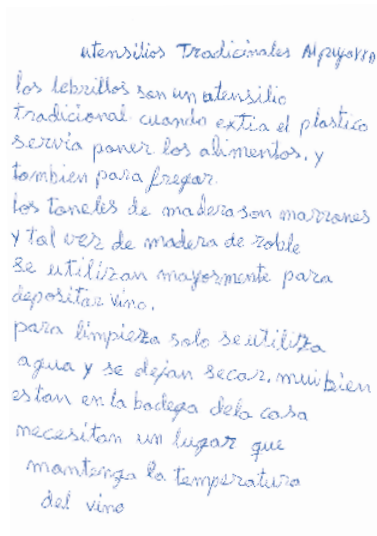 utensilios Tradicinales Alpujarra
los lebrillos son un utensilio
tradicional cuando extia el plastico
servia poner los alimentos, y
tambien para fregar.
los toneles de madera son marrones
y tal vez de madera de roble
se utilizan mayormente para
depositar vino.
para limpieza solo se utiliza
agua y se dejan secar. mui bien
estan en la bodega dela casa
necesitan un lugar que
mantenga la temperatura
del vino